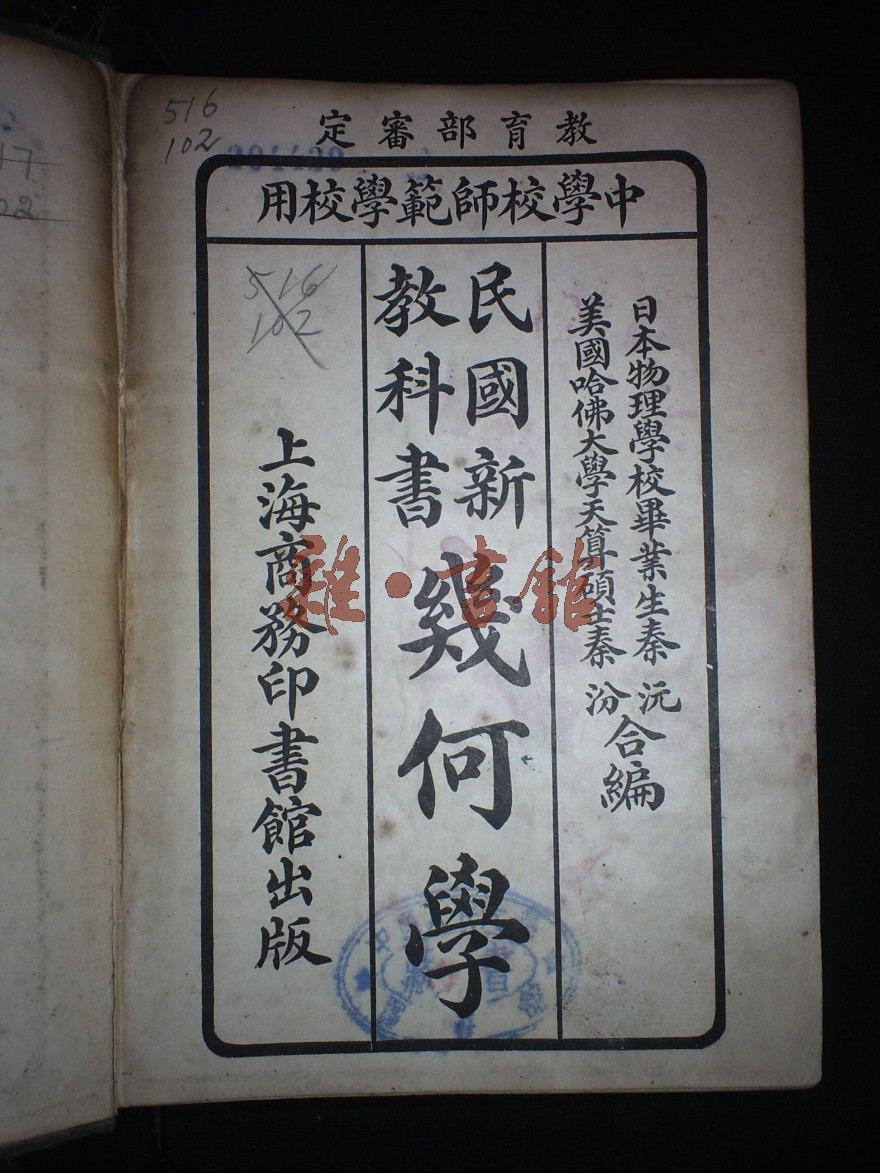 516
102
教育部審定
中學校師範學校用
日本物理學校畢業生秦沅
美國哈佛大學天算碩士秦汾
合編
民國新
教科書
幾何學
516
102
上海商務印書館出版
雜·書館